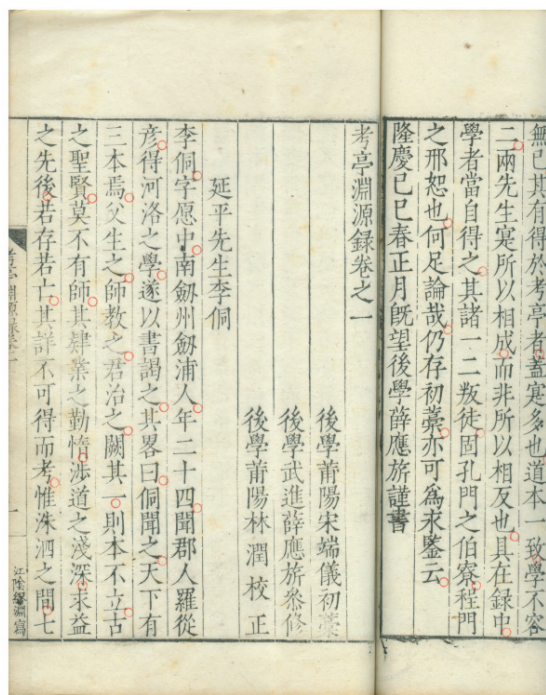 無已其有得於考亭者蓋寔多也道本一致學不容
二兩先生寔所以相成而非所以相反也具在録中
學者當自得之其諸一二叛徒固孔門之伯寮程門
之邢恕也何足論哉仍存初藁亦可爲求鑒云
隆慶己巳春正月旣望後學薛應旂謹書
考亭淵源録卷之一
後學莆陽宋端儀初藁
後學武進薛應旂叅修
後學莆陽林潤校正
延平先生李侗
李侗字愿中南劔州劔浦人年二十四聞郡人羅從
彦得河洛之學遂以書謁之其畧曰侗聞之天下有
三本焉父生之師教之君治之闕其一則本不立古
之聖賢莫不有師其肄業之勤惰涉道之淺深求益
之先後若存若亡其詳不可得而考惟洙泗之間七
江陰繆淵寫